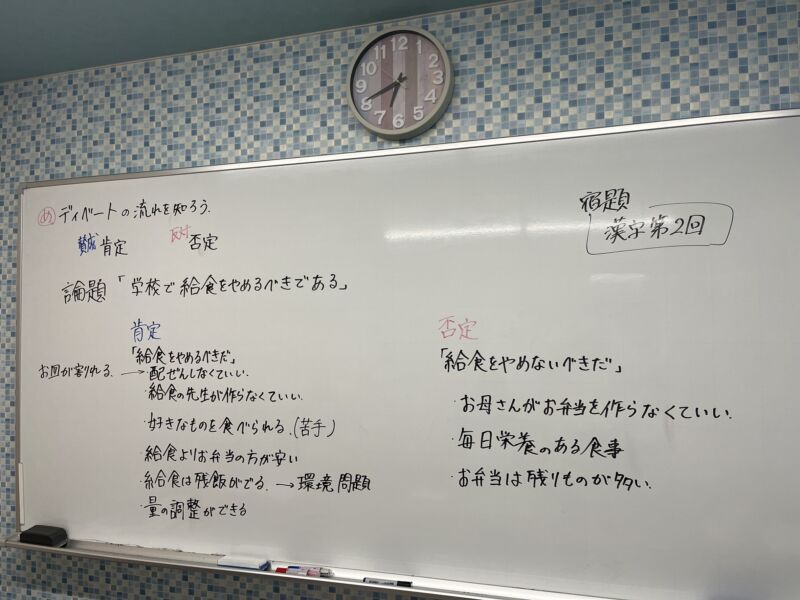 12
1
2
3
4
5
6
7
8
9
10
11
め ディベートの流れを知ろう.
賛成 肯定 反対 否定
論題「学校で給食をやめるべきである」
宿題
漢字第2回
肯定
「給食をやめるべきだ」
お皿が割れる. → ・配ぜんしなくていい.
・給食の先生が作らなくていい.
・好きなものを食べられる.(苦手)
・給食よりお弁当の方が安い
・給食は残飯がでる. → 環境問題
・量の調整ができる
否定
「給食をやめないべきだ」
・お母さんがお弁当を作らなくていい.
・毎日栄養のある食事
・お弁当は残りものが多い.